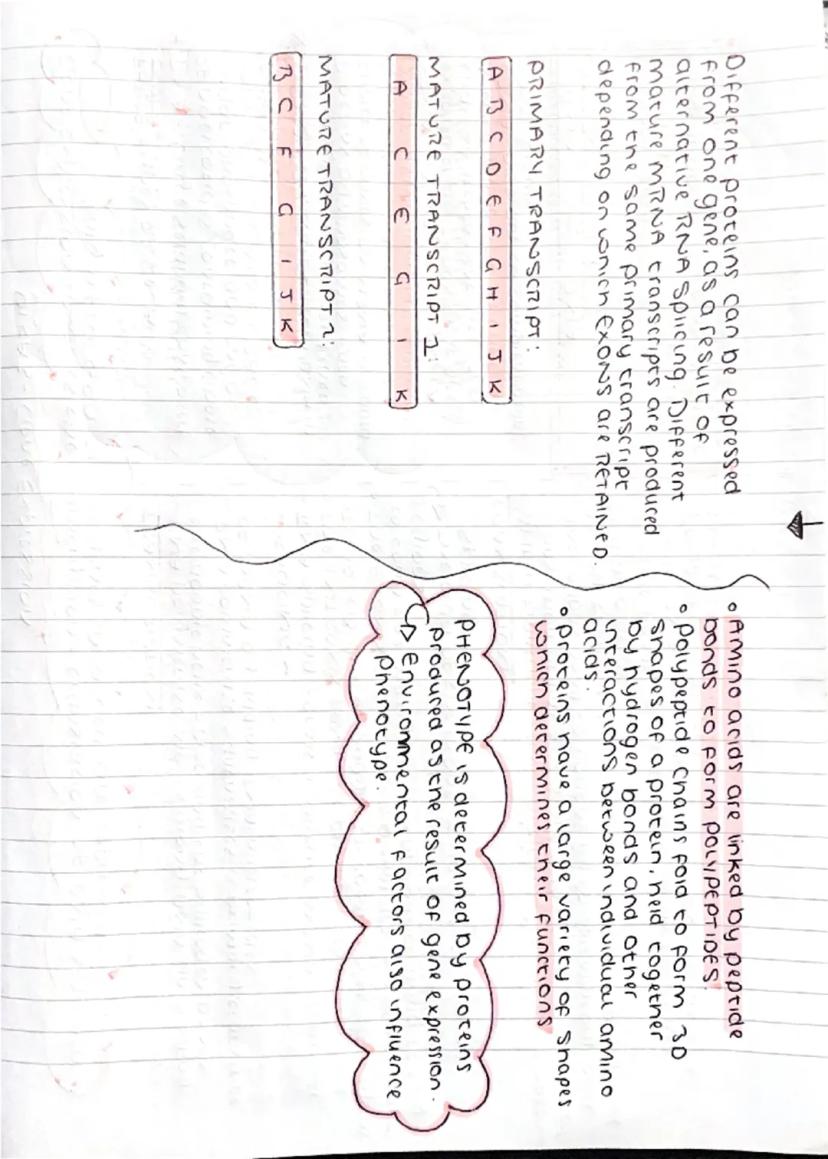 Different proteins can be expressed
from one gene, as a result of
alternative RNA splicing. Different
mature mRNA transcripts are produced
from the same primary transcript
depending on which EXONS are RETAINED.
PRIMARY TRANSCRIPT:
A B C D E F G H I J K
MATURE TRANSCRIPT 1:
A C E G I K
MATURE TRANSCRIPT 2:
B C F G I J K
• Amino acids are linked by peptide
bonds to form POLYPEPTIDES.
• Polypeptide chains fold to form 3D
shapes of a protein, held together
by hydrogen bonds and other
interactions between individual amino
acids.
• Proteins have a large variety of shapes
which determines their functions
PHENOTYPE is determined by proteins
produced as the result of gene expression.
↳ Environmental factors also influence
phenotype.